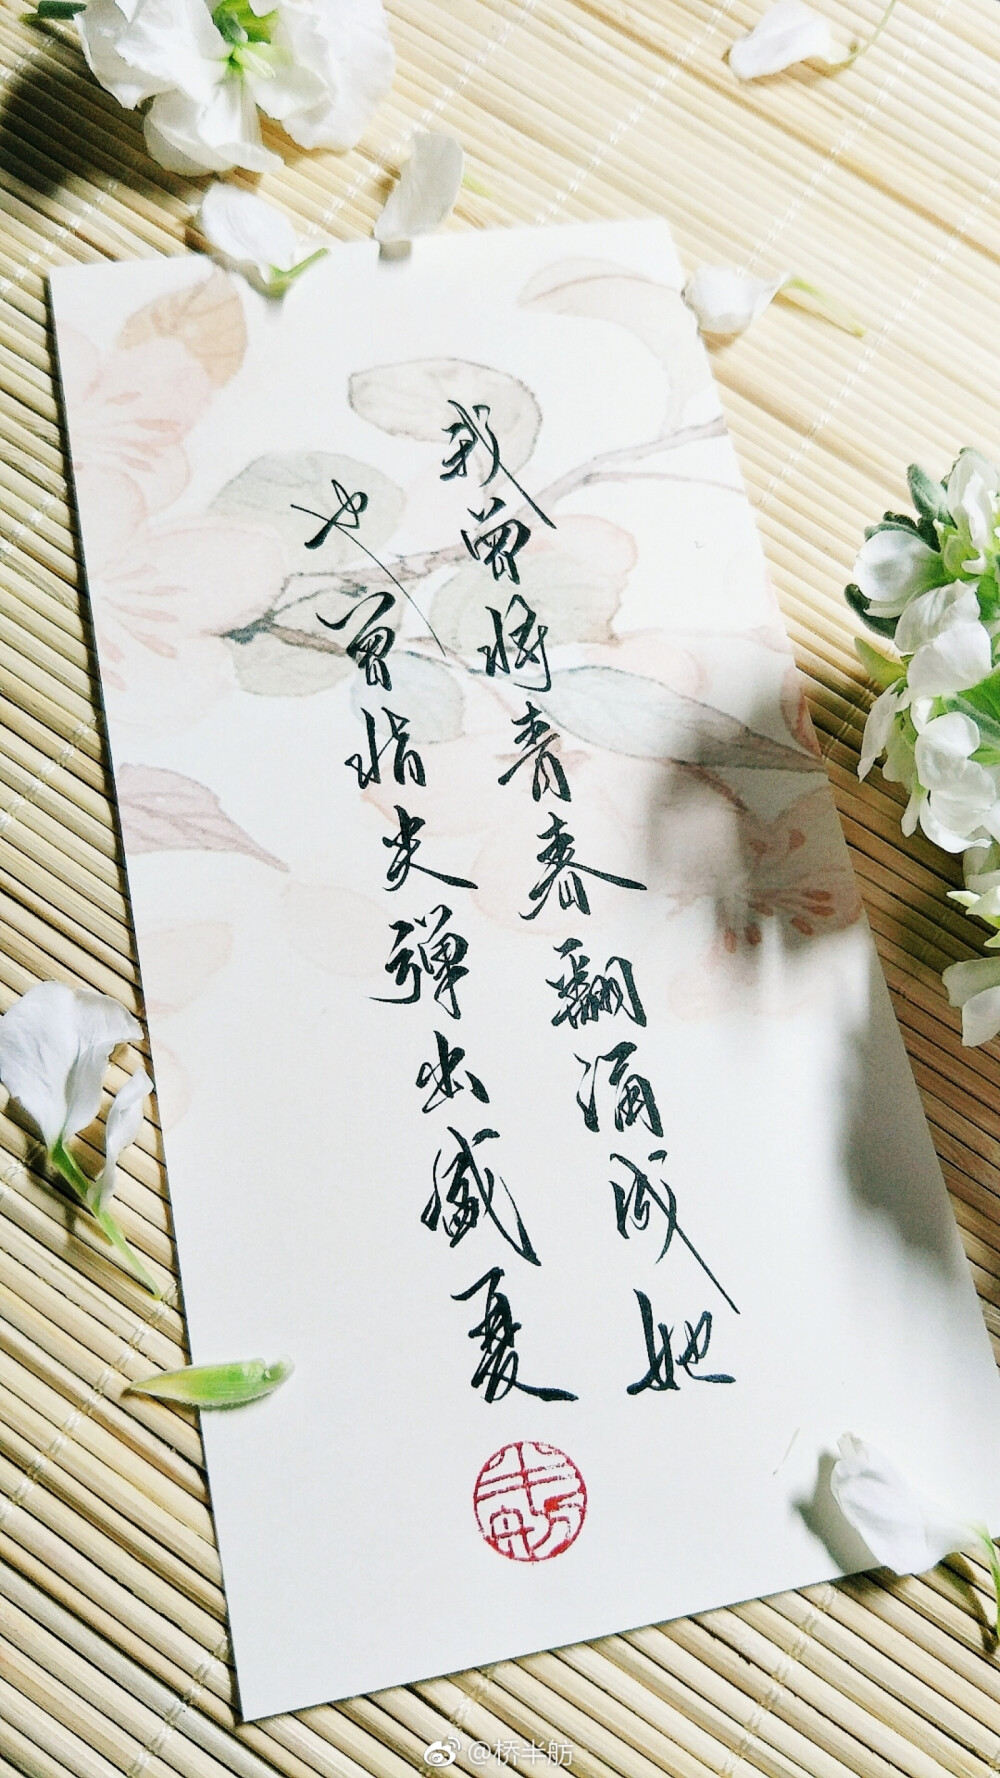 我曾将青春翻涌成她
也曾指尖弹出盛夏
半舫
@桥半舫